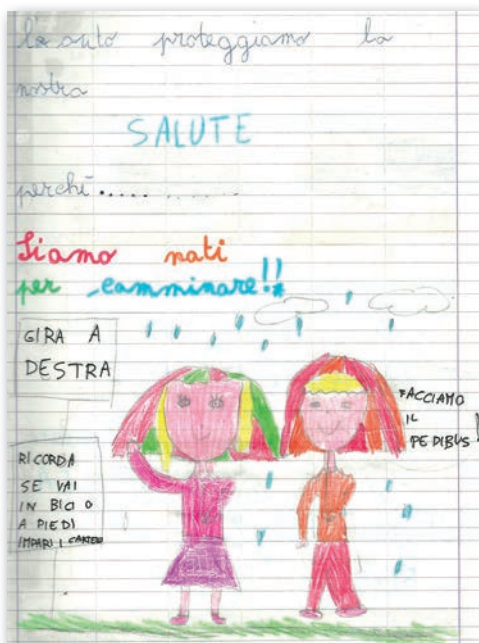 le auto proteggiamo la
nostra
SALUTE
perché..........
Siamo nati
per camminare!!
GIRA A
DESTRA
FACCIAMO
IL
PEDIBUS!
RICORDA
SE VAI
IN BICI O
A PIEDI
IMPARI I CARTELLI